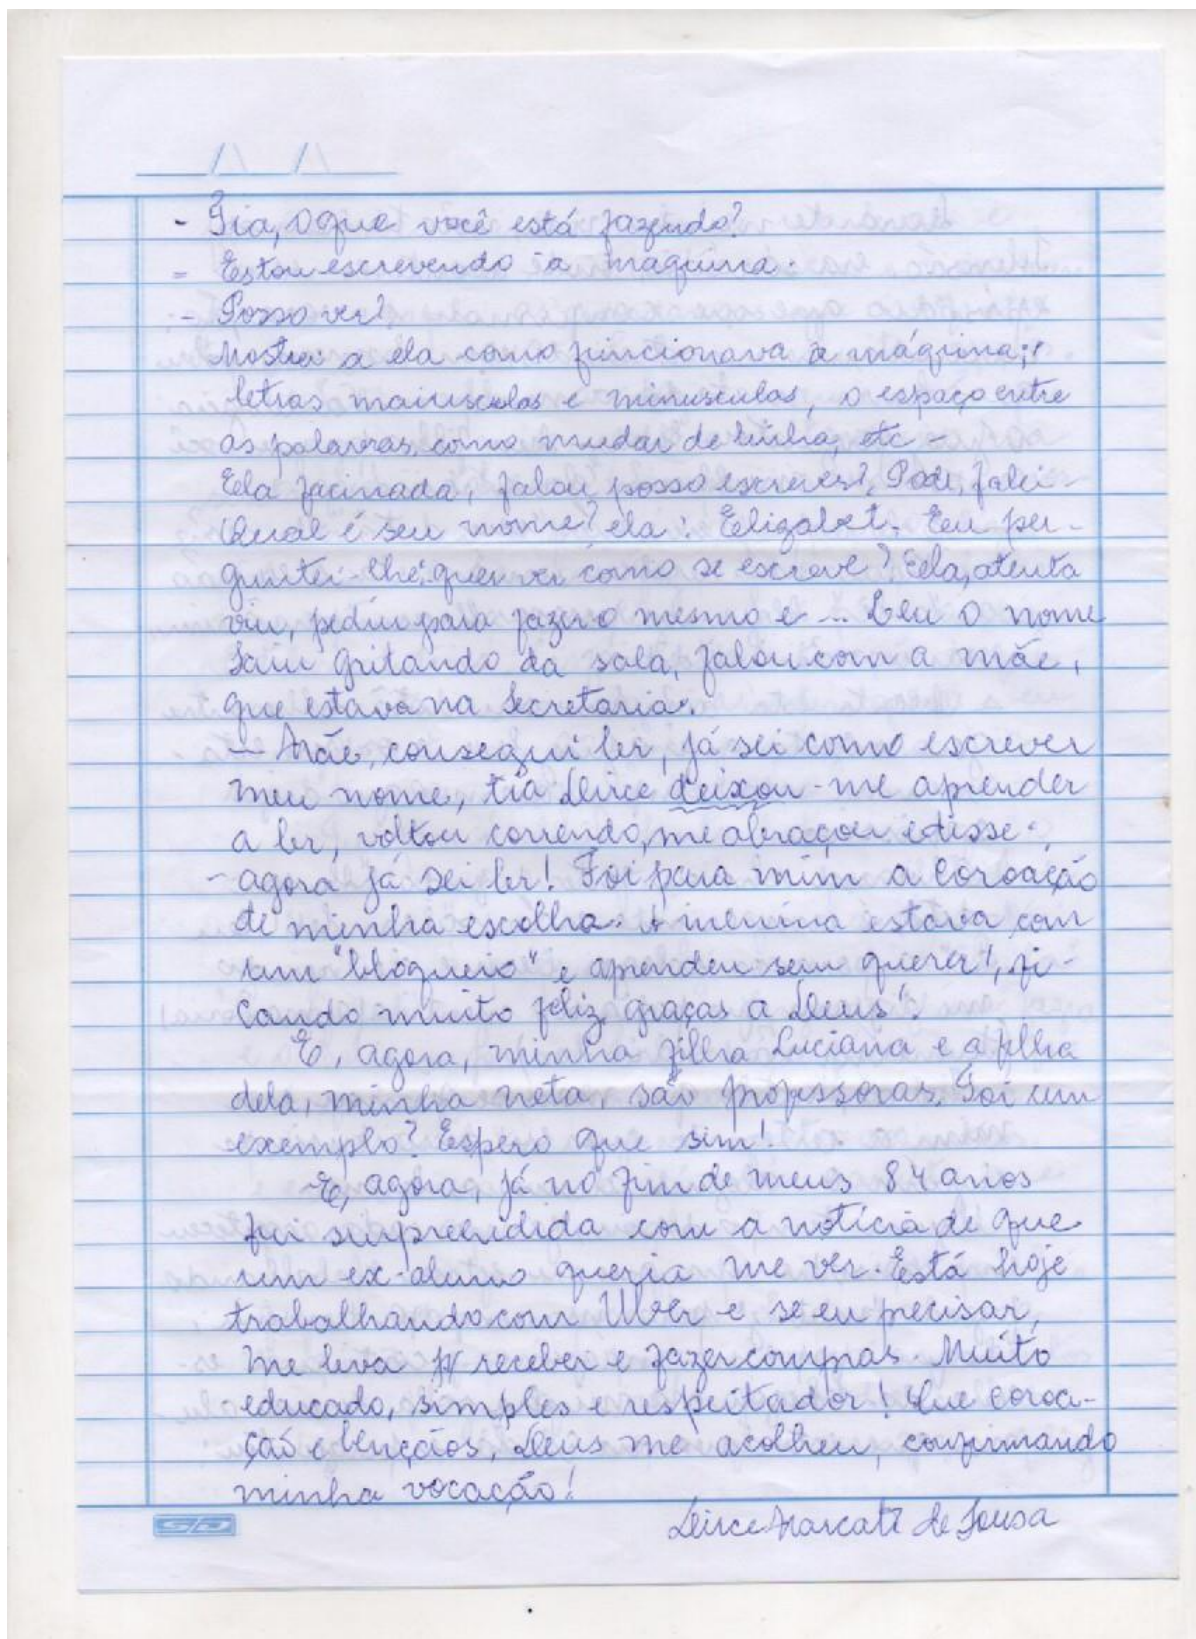 - Tia, o que você está fazendo?
= Estou escrevendo à maquina.
- Posso ver?
Mostrei a ela como funcionava a máquina;
letras maiusculas e minusculas, o espaço entre
as palavras, como mudar de linha, etc -
Ela facinada, falou posso escrever?, Pode, falei -
Qual é seu nome? ela: Elizabet. Eu per-
guntei-lhe: quer ver como se escreve? Ela, atenta
viu, pediu para fazer o mesmo e ... Leu o nome
Saiu gritando da sala, falou com a mãe,
que estava na Secretaria.
- Mãe, consegui ler, já sei como escrever
meu nome, tia Deirce deixou-me aprender
a ler, voltou correndo, me abraçou e disse:
- agora já sei ler! Foi para mim a Coroação
de minha escolha. A menina estava com
um "bloqueio" e aprendeu sem querer!, fi-
cando muito feliz, graças a Deus!
E, agora, minha filha Luciana e a filha
dela, minha neta, são professoras. Foi um
exemplo? Espero que sim!
E, agora, já no fim de meus 84 anos
fui surpreendida com a notícia de que
um ex-aluno queria me ver. Está hoje
trabalhando com Uber e se eu precisar,
me leva p/ receber e fazer compras. Muito
educado, simples e respeitador! Que coroa-
ção e bençãos, Deus me acolheu, confirmando
minha vocação!
Deirce Marcati de Sousa